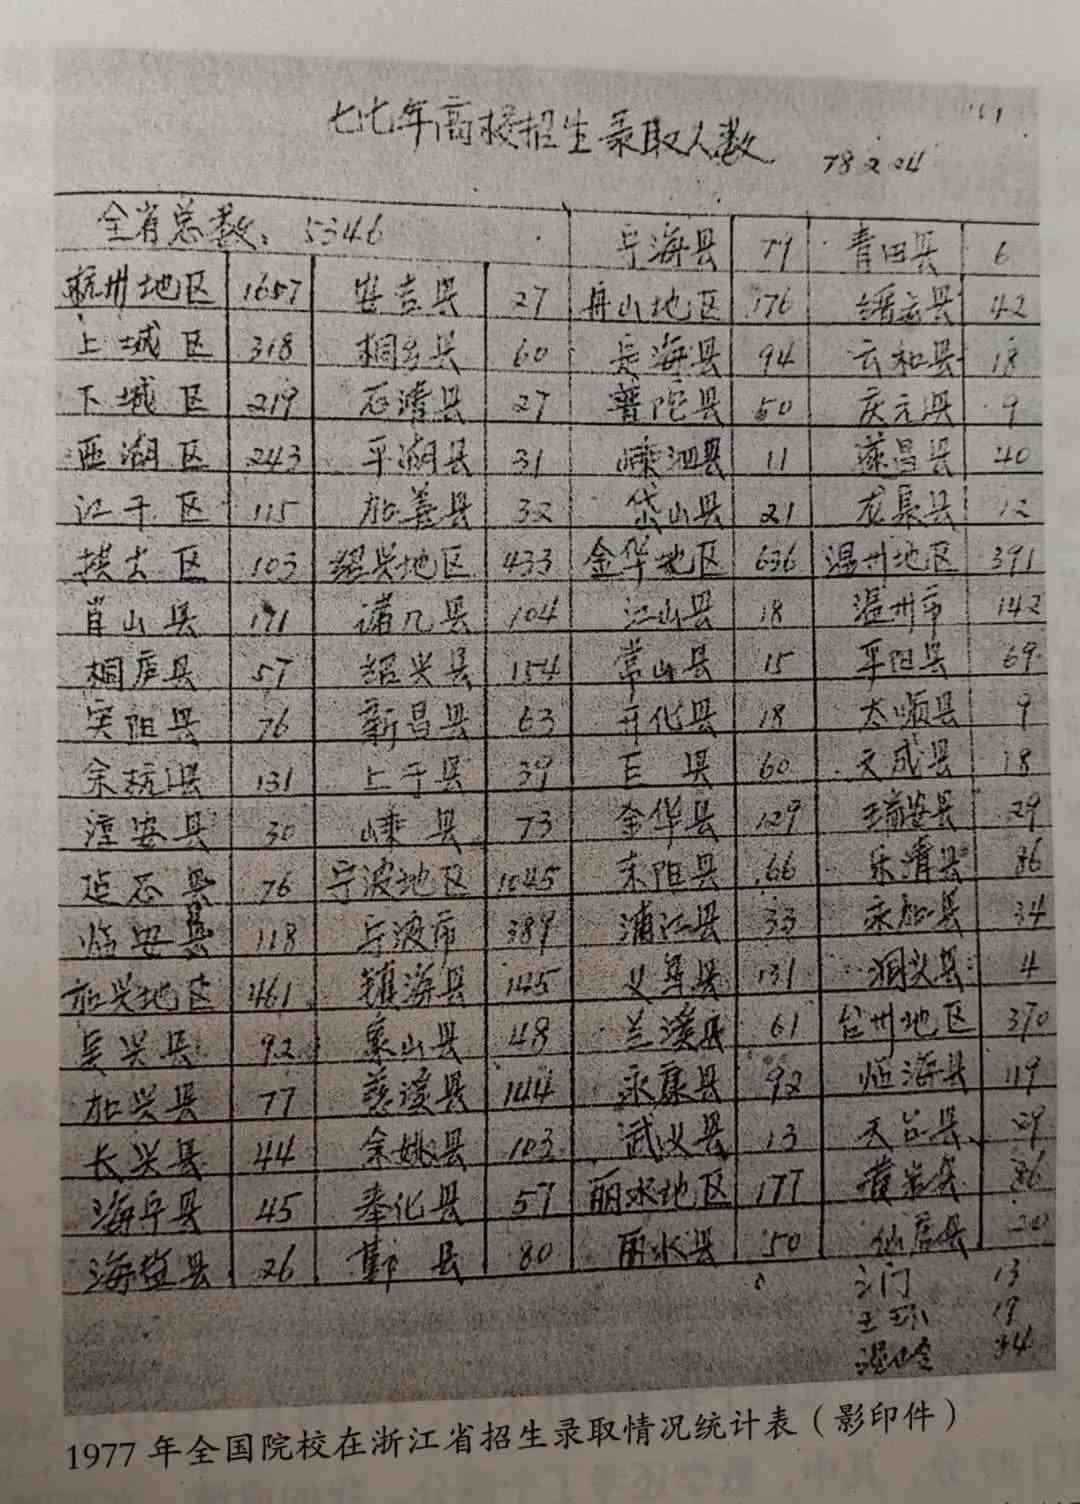 七七年高校招生录取人数
78 2 24
全省总数: 5346 宁海县 79 青田县 6
杭州地区 1657 安吉县 27 舟山地区 176 缙云县 42
上城区 318 桐乡县 60 定海县 94 云和县 18
下城区 219 石湾县 27 普陀县 50 庆元县 9
西湖区 243 平湖县 31 嵊泗县 11 遂昌县 40
江干区 115 加善县 32 岱山县 21 龙泉县 12
拱士区 103 绍兴地区 433 金华地区 636 温州地区 391
肖山县 171 诸几县 104 江山县 18 温州市 142
桐庐县 57 绍兴县 154 常山县 15 平阳县 69
富阳县 76 新昌县 63 开化县 18 太顺县 9
余杭县 131 上于县 39 巨县 60 文成县 18
淳安县 30 嵊县 73 金华县 129 瑞安县 29
建德县 76 宁波地区 1045 东阳县 66 乐清县 86
临安县 118 宁波市 389 浦江县 33 永加县 34
加兴地区 461 镇海县 145 义乌县 131 洞头县 4
吴兴县 92 象山县 48 兰溪县 61 台州地区 370
加兴县 77 慈溪县 144 永康县 92 临海县 119
长兴县 44 余姚县 103 武义县 13 天台县
海宁县 45 奉化县 57 丽水地区 177 黄岩县 86
海盐县 26 鄞县 80 丽水县 50 仙居县
三门 13
玉环 19
温岭
1977年全国院校在浙江省招生录取情况统计表（影印件）